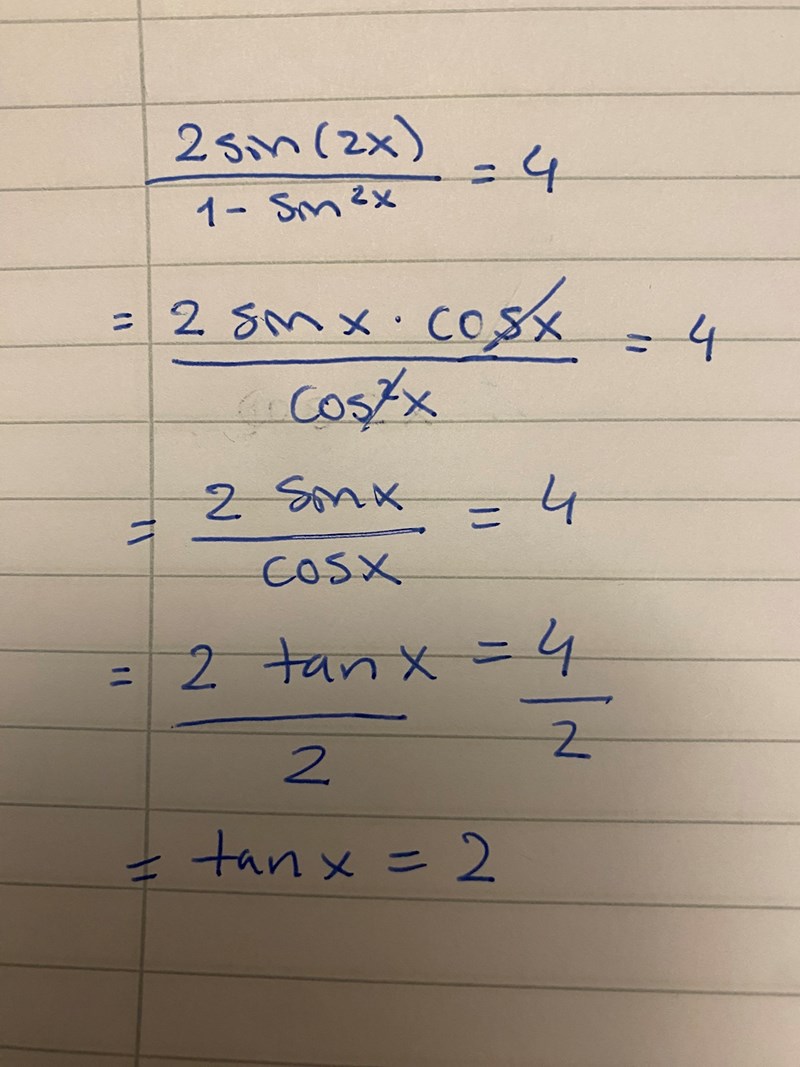 2 sin(2x) / 1 - sin²x = 4
= 2 sin x · cos x / cos²x = 4
= 2 sin x / cos x = 4
= 2 tan x / 2 = 4 / 2
= tan x = 2